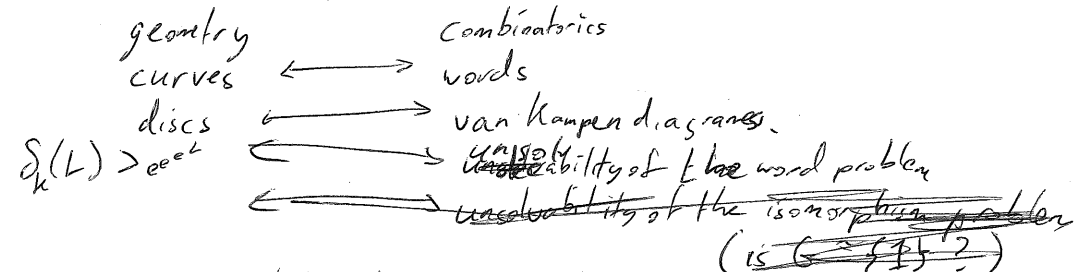 geometry combinatorics
curves ⟷ words
discs ⟷ van Kampen diagrams.
δₖ(L) > e^e^e^L ⟷ unsolvability of the word problem
⟷ unsolvability of the isomorphism problem
(is G ≅ {1} ?)